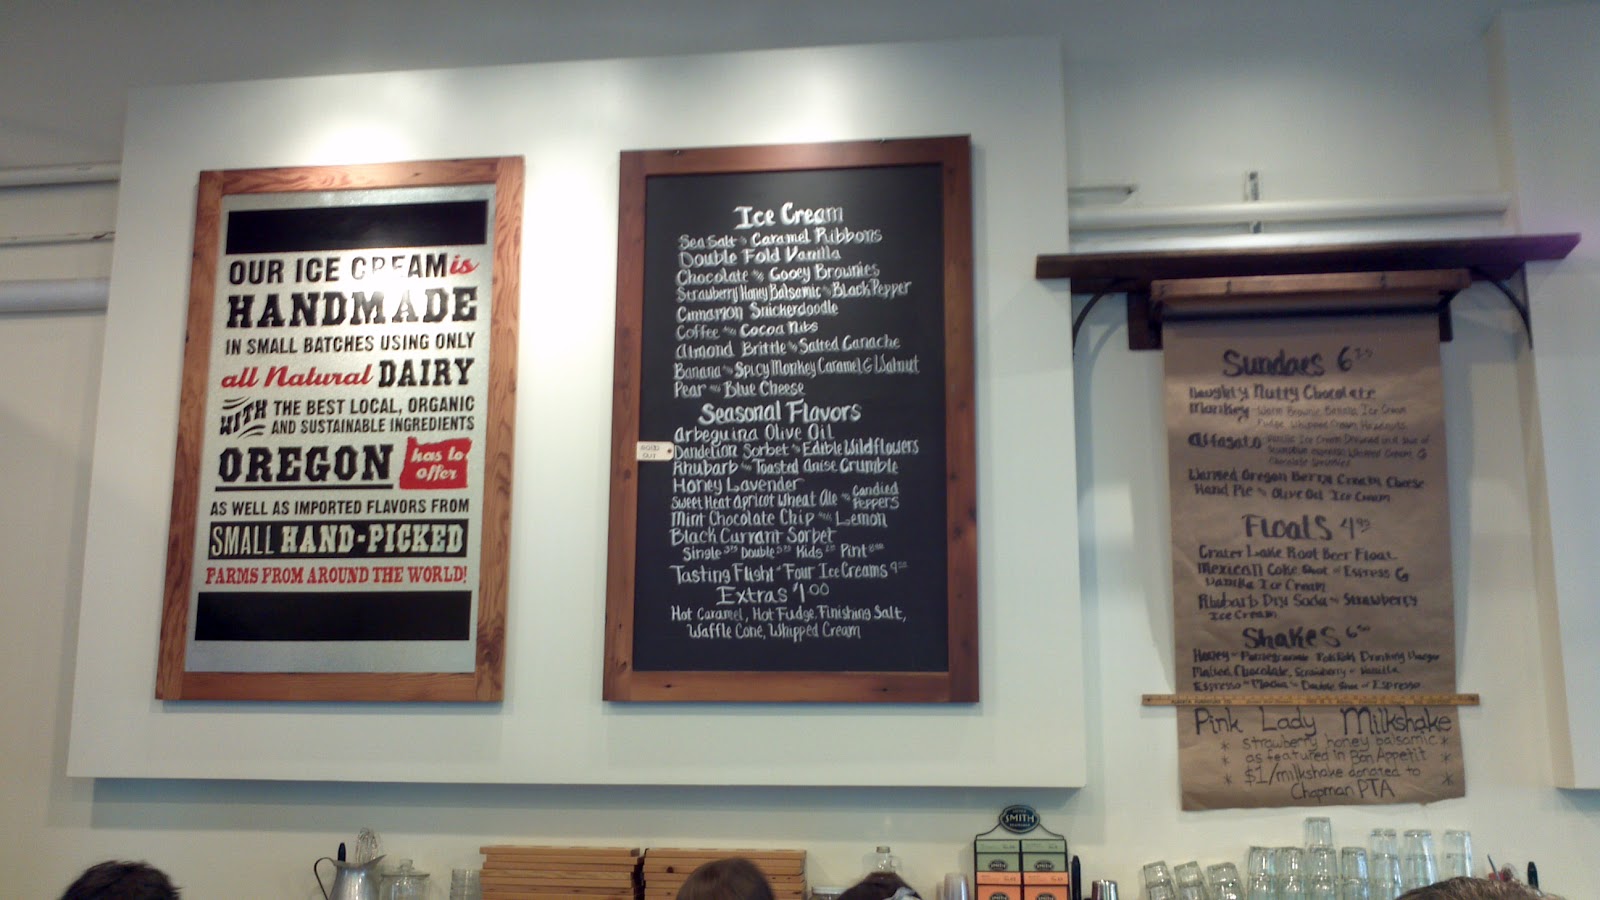 OUR ICE CREAM is
HANDMADE
IN SMALL BATCHES USING ONLY
all Natural DAIRY
WITH THE BEST LOCAL, ORGANIC
AND SUSTAINABLE INGREDIENTS
OREGON has to offer
AS WELL AS IMPORTED FLAVORS FROM
SMALL HAND-PICKED
FARMS FROM AROUND THE WORLD!
Ice Cream
Sea Salt Caramel Ribbons
Double Fold Vanilla
Chocolate Gooey Brownies
Strawberry Honey Balsamic Black Pepper
Cinnamon Snickerdoodle
Coffee Cocoa Nibs
Almond Brittle Salted Ganache
Banana Spicy Monkey Caramel & Walnut
Pear Blue Cheese
Seasonal Flavors
Arbequina Olive Oil
SOLD OUT
Dandelion Sorbet Edible Wildflowers
Rhubarb Toasted Anise Crumble
Honey Lavender
Sweet Heat Apricot Wheat Ale Candied Peppers
Mint Chocolate Chip Lemon
Black Currant Sorbet
Single Double Kids Pint
Tasting Flight Four Ice Creams
Extras $1.00
Hot Caramel, Hot Fudge, Finishing Salt,
Waffle Cone, Whipped Cream
Sundaes 6
Naughty Nutty Chocolate
Monkey Warm Brownie Banana Ice Cream
Fudge, Whipped Cream Hazelnuts
Affogato Vanilla Ice Cream Drowned in a
Whipped Cream &
Chocolate
Warmed Oregon Berry Cream Cheese
Hand Pie Olive Oil Ice Cream
Floats 4
Crater Lake Root Beer Float
Mexican Coke, Shot of Espress &
Vanilla Ice Cream
Rhubarb Dry Soda Strawberry
Ice Cream
Shakes 6
Honey Pomegranate Drinking Vinegar
Malted Chocolate, Strawberry Vanilla
Espresso Mocha Double Shot of Espresso
Pink Lady Milkshake
* strawberry honey balsamic *
* as featured in Bon Appetit *
* $1/milkshake donated to *
Chapman PTA
SMITH